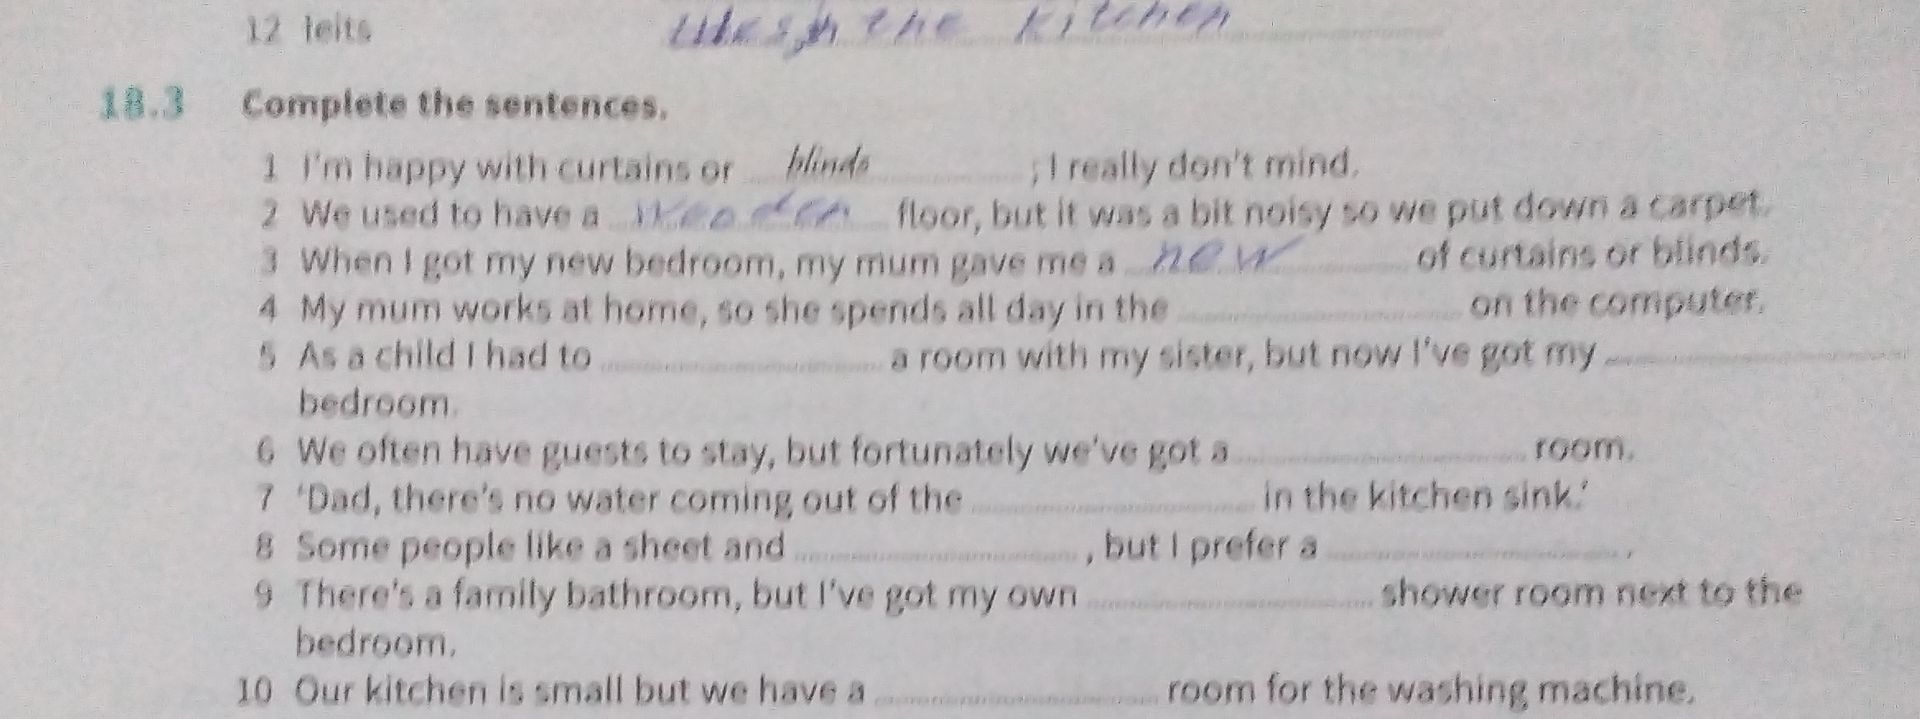 12 felts
in the kitchen
18.3 Complete the sentences.
1 I'm happy with curtains or blinds ; I really don't mind.
2 We used to have a wooden floor, but it was a bit noisy so we put down a carpet.
3 When I got my new bedroom, my mum gave me a new of curtains or blinds.
4 My mum works at home, so she spends all day in the on the computer.
5 As a child I had to a room with my sister, but now I've got my
bedroom.
6 We often have guests to stay, but fortunately we've got a room.
7 'Dad, there's no water coming out of the in the kitchen sink.'
8 Some people like a sheet and , but I prefer a .
9 There's a family bathroom, but I've got my own shower room next to the
bedroom.
10 Our kitchen is small but we have a room for the washing machine.